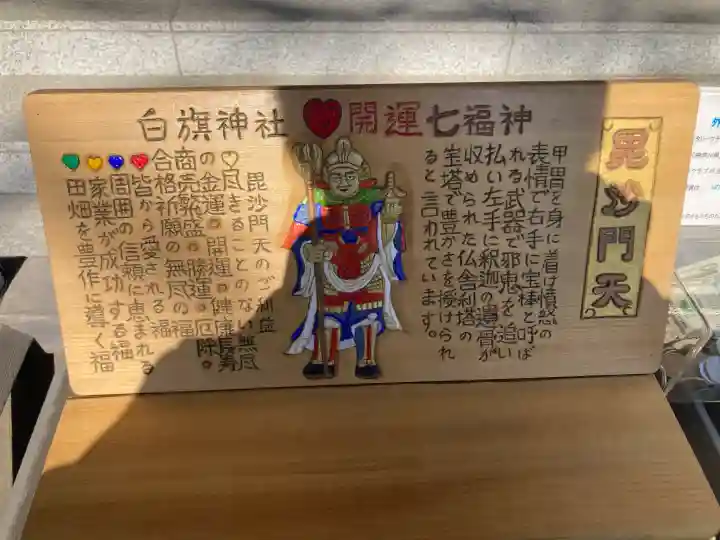 白旗神社 ♥ 開運七福神
毘沙門天
甲冑を身に着け憤怒の
表情で右手に宝棒と呼ば
れる武器で邪鬼を追い
払い左手に釈迦の遺骨が
収められた仏舎利塔の
宝塔で豊かさを授けられ
ると言われています。
毘沙門天のご利益
♡尽きることのない無尽
の金運。開運。健康長寿
商売繁盛。勝運。厄除。
合格祈願の無尽の福
♥皆から愛される福
♥周囲の信頼に恵まれる
♥家業が成功する福
♥田畑を豊作に導く福